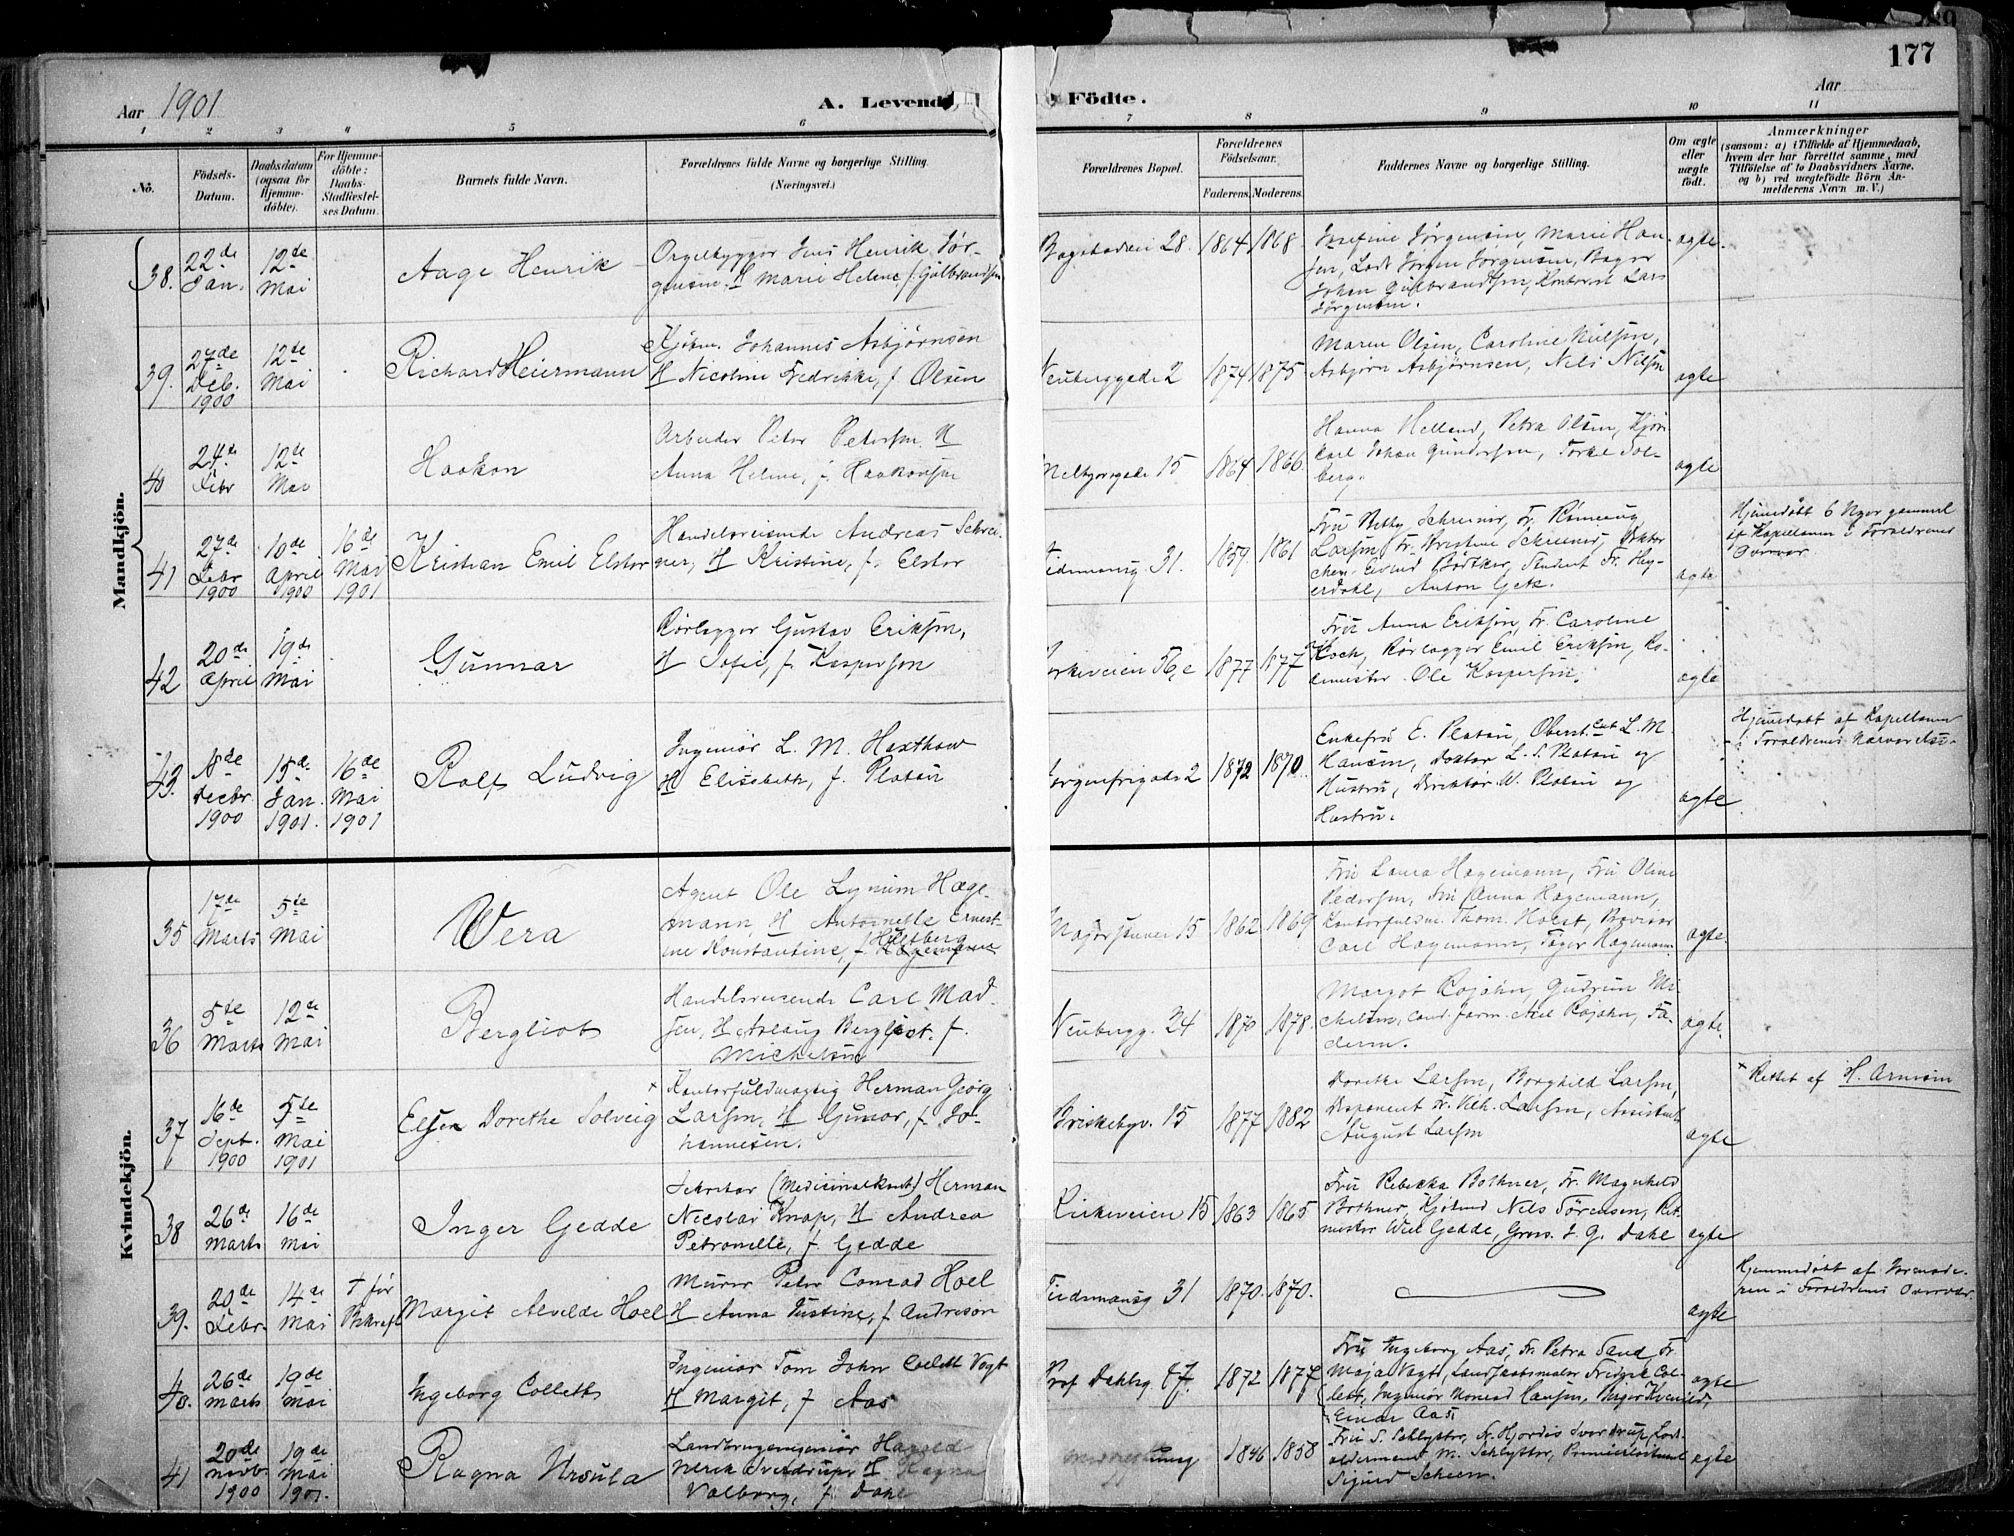 189
177
Aar 1901
A. Levende Födte.
Aar
1 2 3 4 5 6 7 8 9 10 11
No.
Födsels-
Datum.
Daabsdatum
(ogsaa for
Hjemme-
döbte).
For Hjemme-
döbte:
Daabs-
Stadfæstel-
ses Datum.
Barnets fulde Navn.
Forældrenes fulde Navne og borgerlige Stilling.
(Næringsvei.)
Forældrenes Bopæl.
Forældrenes
Födselsaar.
Faderens. Moderens.
Faddernes Navne og borgerlige Stilling.
Om ægte
eller
uægte
födt.
Anmærkninger
(saasom: a) i Tilfælde af Hjemmedaab,
hvem der har forrettet samme, med
Tilföielse af to Daabsvidners Navne,
og b) ved uægtefödte Börn An-
melderens Navn m. V.)
Mandkjön.
38.
22de
Jan.
12de
Mai
Aage Henrik
Orgelbygger Jens Henrik Jør-
gensen. H Marie Helene, f. Gulbrandsen
Bogstadvei 28. 1864 1868
Josefine Jørgensen, Marie Han-
sen, Lods Jørgen Jørgensen, Bager
Johan Gulbrandsen, Kontorist Lars
Jørgensen.
ægte.
39.
27de
Deb.
1900
12de
Mai
Richard Heiermann
Kjøbm. Johannes Asbjørnsen
H Nicoline Fredrikke, f. Olsen
Neuberggade 2 1874 1875
Maren Olsen, Caroline Nielsen,
Asbjørn Asbjørnsen, Nils Nilsen
ægte
40
24de
Febr
12de
Mai
Haakon
Arbeider Peter Petersen H
Anna Helene, f. Haakonsen
15 1864 1866.
Hanna Helland, Petra Olsen, Kjør.
Carl Johan Gundersen, Torkel Sol-
berg.
ægte
41
27de
Febr
1900
10de
April
1900
16de
Mai
1901
Kristian Emil Elster
Handelsreisende Andreas Schrei-
ner, H Kristine, f. Elster
Tidemansg. 31. 1859. 1861
Fru Betty Schreiner, Fr. Romaug
Larsen, Fr. Kristine Schreiner, Dokter
chem. Eivind Bødtker, Student Fr. Hey-
erdahl, Anton Getz.
ægte
Hjemmedøbt 6 Uger gammel
af Kapellanen i Forældrenes
Overvær
42
20de
April
19de
Mai
Gunnar
Rørlægger Gustav Eriksen,
H Sofie, f. Kaspersen
Kirkeveien 1877 1877
Fru Anna Eriksen, Fr. Caroline
Koch, Rørlægger Emil Eriksen,
Ole Kaspersen.
ægte
43.
Decbr.
1900
15de
Jan.
1901.
16de
Mai
1901
Rolf Ludvig
Ingeniør L. M. Haxthow
H Elisabeth, f. Platou
Sorgenfrigade 2 1872 1870.
Enkefru E. Platou, Oberstløt L. M.
Hansen, Doktor L. S. Platou og
Hustru, Direktør W. Platou og
Hustru.
ægte
Hjemmedøbt af Kapellanen
i Forældrenes Nærvær
Kvindekjön.
35
17de
Marts
5te
Mai
Vera
Agent Ole Lynum Hage-
mann, H Antoinette Ernest-
ine Konstantine, f. Hultberg
Majorstuvei 15 1862 1869
Fru Laura Hagemann, Fru Oline
Pedersen, Fru Anna Hagemann,
Kontorfuldm. Thom. Holst,
Carl Hagemann, Hagemann
ægte.
36
5te
Marts
12de
Mai
Bergliot
Handelsreisende Carl Mad-
sen, H Aslaug Bergliot. f.
Michelsen
Neubergg. 24 1870 1878.
Margot Rojahn, Gudrun Mi-
chelsen, cand. farm. Axel Rojahn, Fa-
deren.
ægte.
37
16de
Sept.
1900
5te
Mai
1901
Elsen Dorethe Solveig ×
Kontorfuldmægtig Herman Georg
Larsen, H Gunvor, f. Jo-
hannesen.
Briskebyv. 15 1877 1882
Dorethe Larsen, Borghild Larsen,
Disponent Fr. Vilh. Larsen, Assistent
August Larsen
ægte
× Rettet af H. Arnesen
38
26de
Marts
16de
Mai
Inger Gedde
Sekretær (Medicinalkont.) Herman
Nicolai Knap, H Andrea
Petronelle, f. Gedde
Kirkeveien 15 1863 1865
Fru Rebekka Bothner, Fr. Magnhild
Bothner, Kjøbmd Nils Sørensen, Rit-
mester Gedde, Gross. J. G. Dahl
ægte
39.
20de
Febr.
14de
Mai
† før
Bekræft
Margit Alvilde Hoel
Murer Peter Conrad Hoel
H Anna Justine, f. Andresen
Tidemansg 31 1870. 1870.
ægte
Hjemmedøbt af Jormode-
ren i Forældrenes Overvær.
40.
26de
Marts
19de
Mai
Ingeborg Collett
Ingeniør Tom John Collett Vogt
H Margit, f. Aas
Prof Dahlsg 47. 1872 1877
Fru Ingeborg Aas, Fr. Petra Sand, Fr.
Maja Vogt, Landskabsmaler Fridrik Col-
lett, Ingeniør Konrad Hansen, Birger Kvenild,
Einar Aas
ægte
41
20de
Novb
1900
19de
Mai
1901.
Ragna Ursula
Landbrugsingeniør Harald
Ulrik Sverdrup, H Ragna
Valborg, f. Dahl
1846 1858
Fru S. Schlytter, Fr. Hjordis Sverdrup, Lods-
oldermand M. Schlytter, Premierløitnant
Sigurd Scheen.
ægte